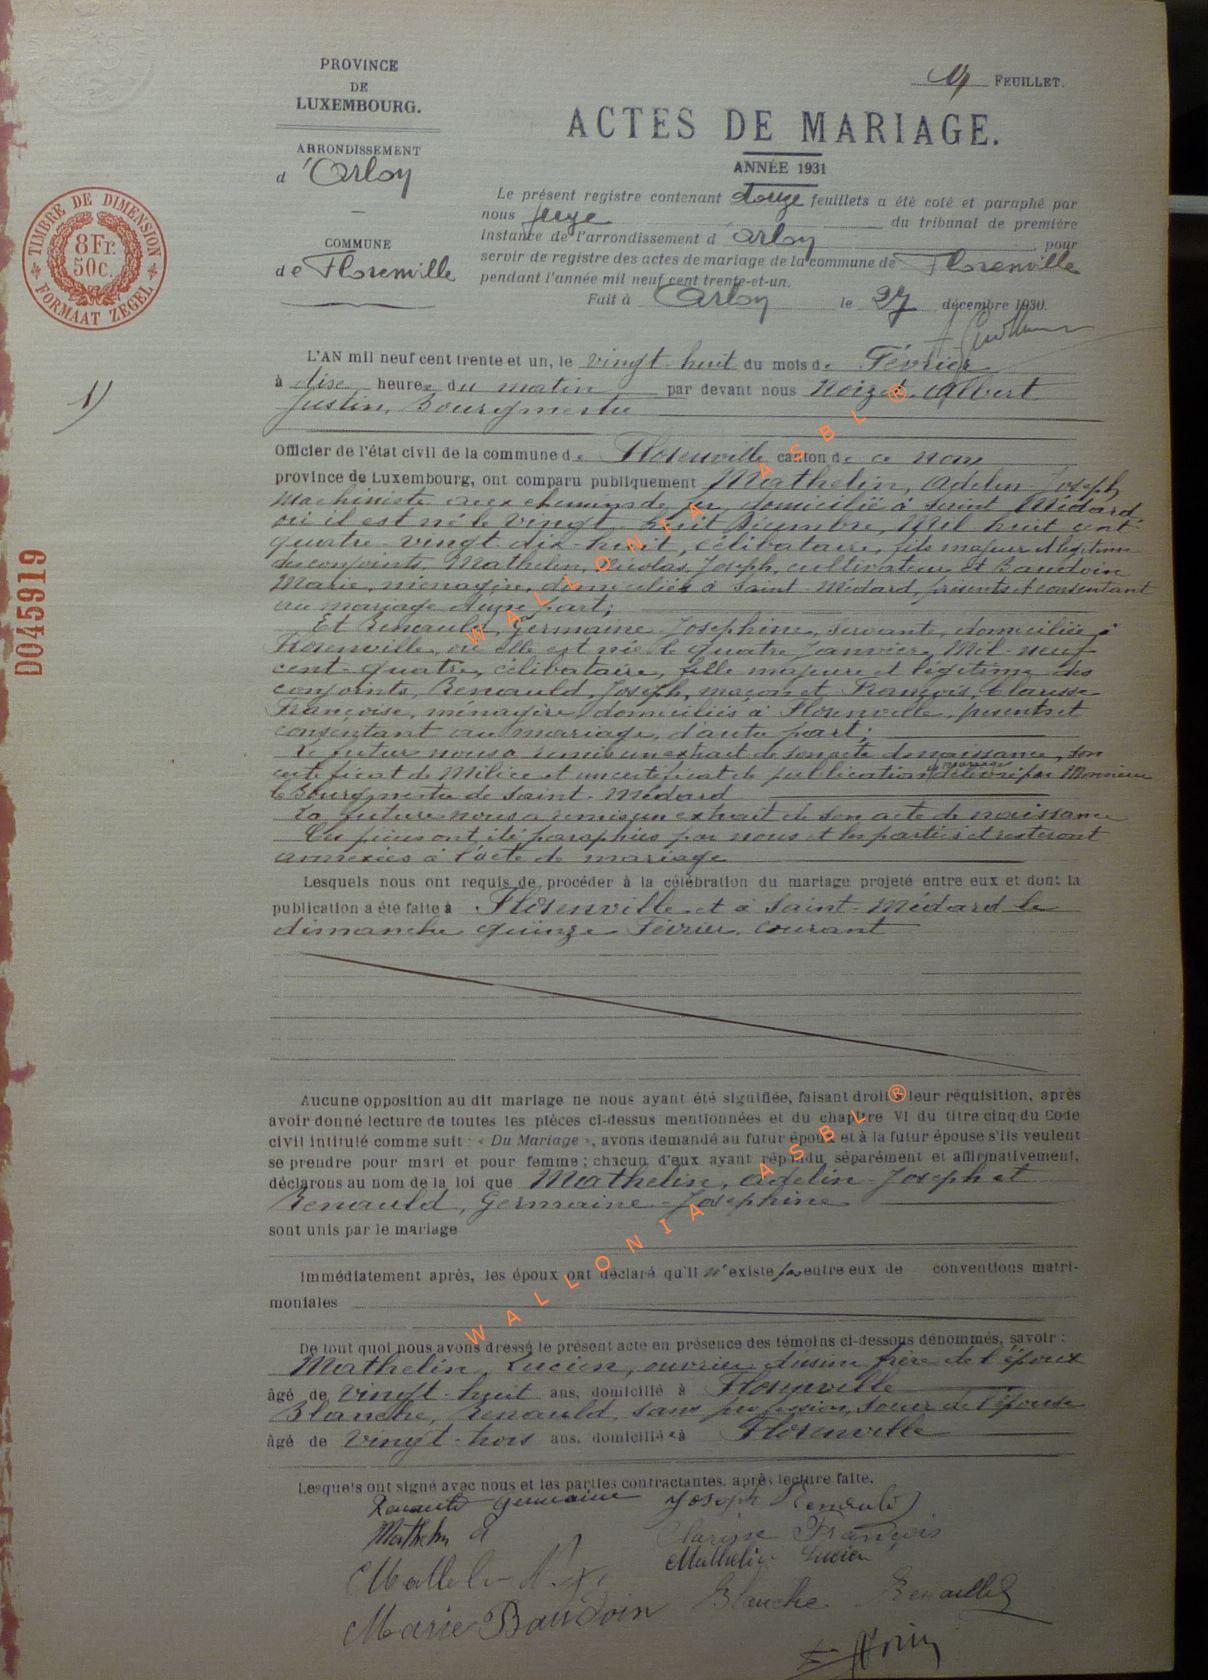 PROVINCE
DE
LUXEMBOURG.
ARRONDISSEMENT
d'Arlon
COMMUNE
de Florenville
FEUILLET.
ACTES DE MARIAGE.
ANNÉE 1931
Le présent registre contenant douze feuillets a été coté et paraphé par
nous juge du tribunal de première
instance de l'arrondissement d'Arlon pour
servir de registre des actes de mariage de la commune de Florenville
pendant l'année mil neuf cent trente-et-un.
Fait à Arlon le 27 décembre 1930.
TIMBRE DE DIMENSION
8Fr.
50c.
FORMAAT ZEGEL
D045919
1)
L'AN mil neuf cent trente et un, le vingt-huit du mois de Février
à dixe heures du matin par devant nous Noizet Albert
Justin, Bourgmestre
Officier de l'état civil de la commune de Florenville canton de ce nom
province de Luxembourg, ont comparu publiquement Mathelin, Adelin-Joseph
Machiniste aux chemins de fer, domicilié à Saint Médard
où il est né le vingt-huit Décembre, Mil huit cent
quatre-vingt-dix-huit, célibataire, fils majeur et légitime
des conjoints, Mathelin, Nicolas, Joseph, cultivateur et Baudoin
Marie, ménagère, domiciliés à Saint-Médard, présents et consentant
au mariage d'une part;
Et Renauld, Germaine-Josephine, servante, domiciliée à
Florenville, où elle est née le quatre Janvier, Mil-neuf
cent-quatre, célibataire, fille majeure et légitime des
conjoints, Renauld, Joseph, maçon et François, Clarisse
Françoise, ménagère, domiciliés à Florenville, présents et
consentant au mariage, d'autre part;
Le futur nous a remis un extrait de son acte de naissance, son
certificat de Milice et un certificat de publication de mariage délivré par Monsieur
le Bourgmestre de Saint-Médard
La future nous a remis un extrait de son acte de naissance
Ces pièces ont été paraphées par nous et les parties et resteront
annexées à l'acte de mariage
Lesquels nous ont requis de procéder à la célébration du mariage projeté entre eux et dont la
publication a été faite à Florenville et à Saint-Médard le
dimanche quinze Février, courant
Aucune opposition au dit mariage ne nous ayant été signifiée, faisant droit leur réquisition, après
avoir donné lecture de toutes les pièces ci-dessus mentionnées et du chapitre VI du titre cinq du Code
civil intitulé comme suit : « Du Mariage », avons demandé au futur époux et à la futur épouse s'ils veulent
se prendre pour mari et pour femme ; chacun d'eux ayant répondu séparément et affirmativement,
déclarons au nom de la loi que Mathelin, Adelin-Joseph et
Renauld, Germaine-Josephine
sont unis par le mariage
Immédiatement après, les époux ont déclaré qu'il n'existe pas entre eux de conventions matri-
moniales
De tout quoi nous avons dressé le présent acte en présence des témoins ci-dessous dénommés, savoir :
Mathelin, Lucien, ouvrier d'usine frère de l'époux
âgé de vingt-huit ans, domicilié à Florenville
Blanche, Renauld, sans profession, soeur de l'épouse
âgé de vingt-trois ans, domiciliée à Florenville
Lesquels ont signé avec nous et les parties contractantes, après lecture faite.
Renauld Germaine Joseph Renauld
Mathelin A Clarisse François
Mathelin Lucien
Mathelin
Marie Baudoin Blanche Renauld
WALLONIA ASBL ®
WALLONIA ASBL ®